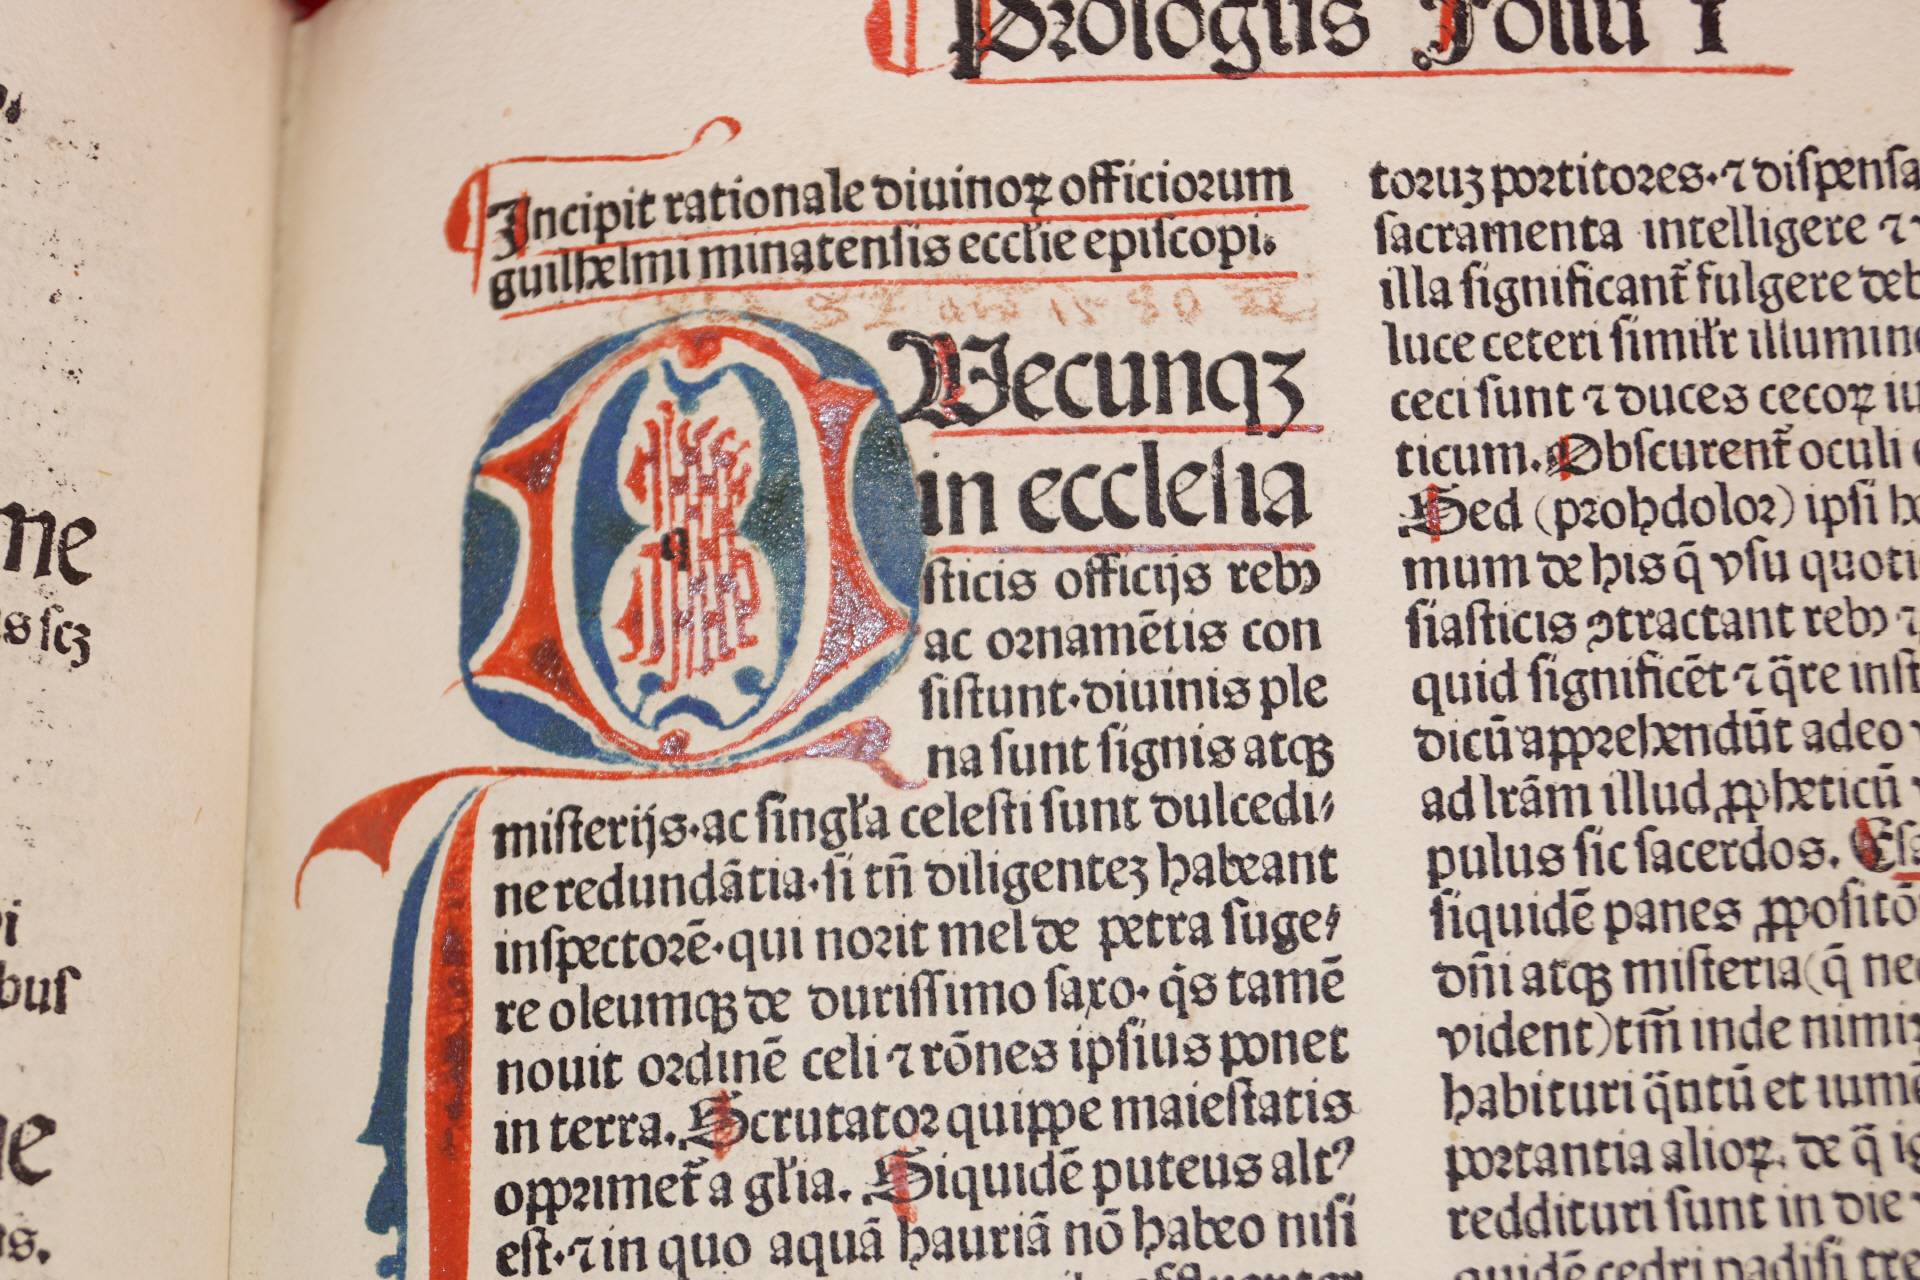 Prologus Foliū I
Incipit rationale diuinoꝝ officiorum
guilhelmi minatensis ecclīe episcopi.
QVecunqꝫ
in ecclesia
sticis officijs rebꝰ
ac ornamētis con
sistunt·diuinis ple
na sunt signis atqꝫ
misterijs·ac singl'a celesti sunt dulcedi⸗
ne redundātia·si tn̄ diligenteꝫ habeant
inspectorē·qui norit mel de petra suge⸗
re oleumqꝫ de durissimo saxo· q̇s tamē
nouit ordinē celi ⁊ rōnes ipsius ponet
in terra. Scrutator quippe maiestatis
opprimet᷑ a gl'ia. Siquidē puteus altꝰ
est·⁊ in quo aquā hauriā nō habeo nisi
toruꝫ portitores·⁊ dispensa
sacramenta intelligere ⁊
illa significant᷑ fulgere deb
luce ceteri simil'r illumin
ceci sunt ⁊ duces cecoꝝ iu
ticum. Obscurent᷑ oculi
Sed (prohdolor) ipsi he
mum de his q̄ vsu quoti
siasticis ꝯtractant rebꝰ ⁊
quid significēt ⁊ q̄re inst
dicū apprehendūt adeo
ad lr̄am illud ꝓpheticū
pulus sic sacerdos. Esa
siquidē panes ꝓpositō
dn̄i atqꝫ misteria (q̄ nec
vident) tm̄ inde nimiꝝ
habituri q̄ntū et iumē
portantia alioꝝ. de q̄ ig
reddituri sunt in die
quidē cedri padisi tre
ne
s scꝫ
bus
ne